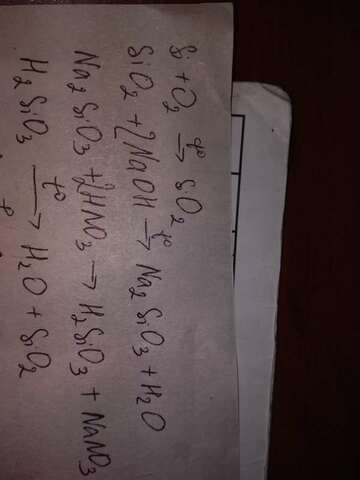 Si + O₂ —t°→ SiO₂
SiO₂ + 2NaOH —t°→ Na₂SiO₃ + H₂O
Na₂SiO₃ + 2HNO₃ → H₂SiO₃ + NaNO₃
H₂SiO₃ —t°→ H₂O + SiO₂